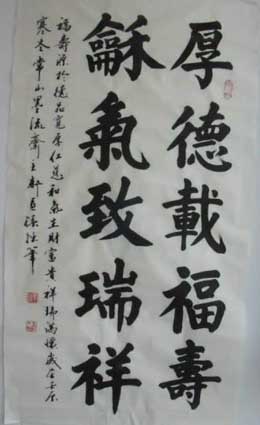 厚德載福壽
龢氣致瑞祥
福壽源於德品寬厚仁道和氣生財富貴祥瑞滿懷歲在壬辰
寒冬常山墨流齋主